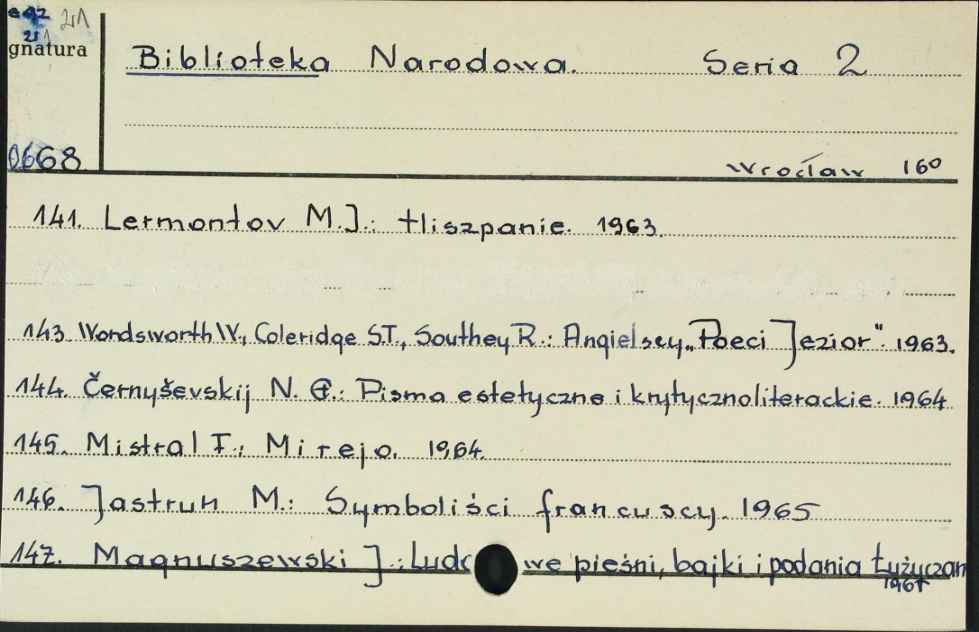 21
21
gnatura
Biblioteka Narodowa. Seria 2
0668
Wrocław 160
141. Lermontov M.J.: Hiszpanie. 1963.
143. Wordsworth W., Coleridge S.T., Southey R.: Angielscy "Poeci Jezior". 1963.
144. Černyševskij N. G.: Pisma estetyczne i krytycznoliterackie. 1964
145. Mistral F.: Mirejo. 1964.
146. Jastrun M.: Symboliści francuscy. 1965
147. Magnuszewski J.: Ludowe pieśni, bajki i podania Łużyczan
1965